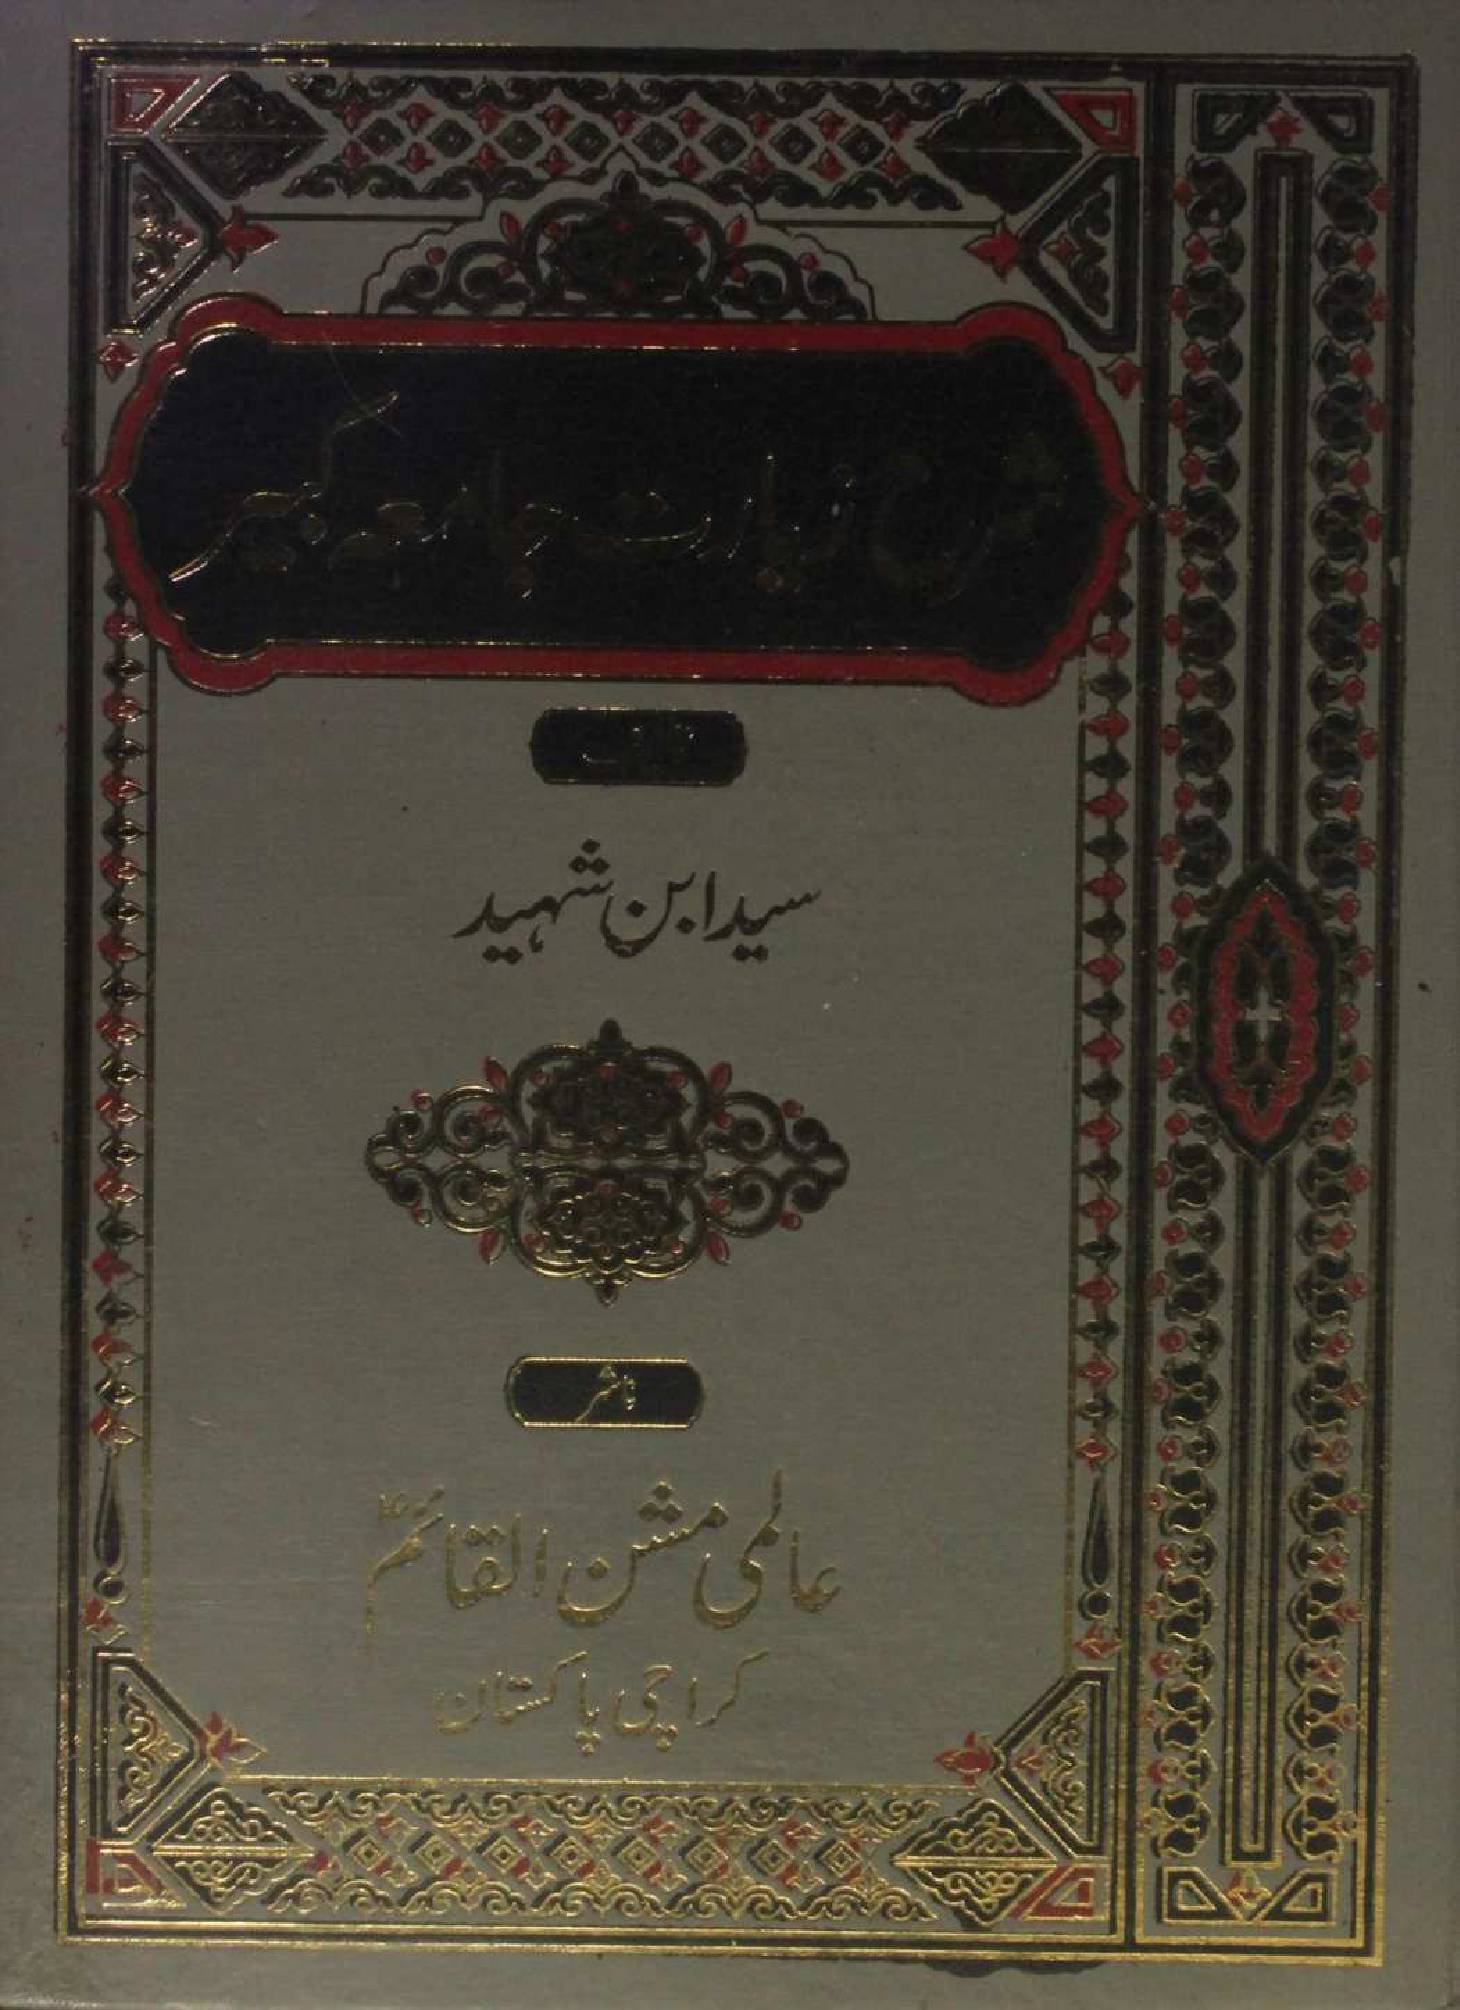 شرح زیارت جامعہ کبیرہ
سید ابن شہید
ناشر
عالمی مشن القائمؑ
کراچی پاکستان